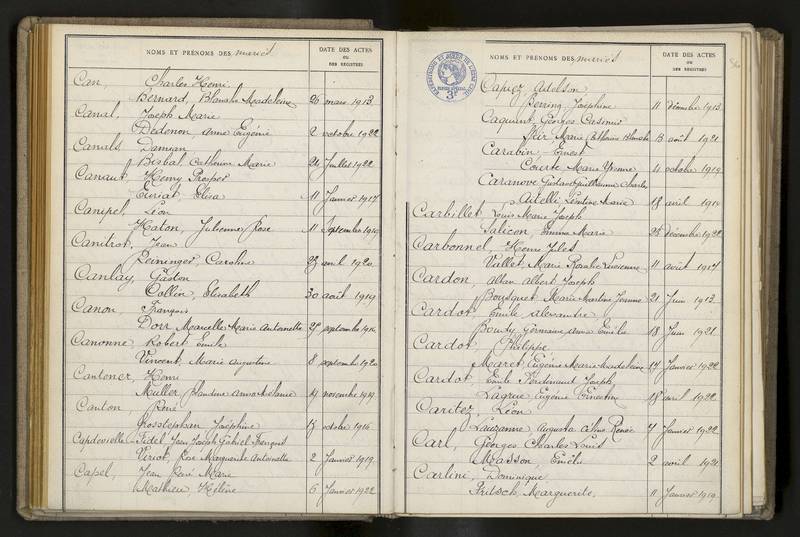 NOMS ET PRÉNOMS DES mariés
DATE DES ACTES
OU
DES REGISTRES
Can, Charles Henri
Bernard, Blanche Madeleine 26 mars 1913
Canal, Joseph Marie
Dedenon, Anne Eugénie 2 octobre 1922
Canals Damian
Bisbal Catherine Marie 24 Juillet 1922
Canaut Henry Prosper
Euriat, Elisa 11 Janvier 1917
Canipel, Léon
Haton, Julienne Rose 11 Septembre
Canitrot, Jean
Reininger, Caroline 29 avril 1920
Canlay, Gaston
Collin, Elisabeth 30 août 1919
Canon, François
Dorr Marcelle Marie Antoinette septembre
Canonne, Robert Emile
Vincent, Marie Augustine 8 septembre 1920
Cantoner, Henri
Muller, Blandine 14 novembre 1919
Canton, René
Grosstephan Joséphine octobre 1916
Capdevielle Fidel Jean Joseph Gabriel
Viriot, Rose Marguerite Antoinette 2 Janvier 1919
Capel, Jean René Marie
Mathieu, Hélène 6 Janvier 1922
NOMS ET PRÉNOMS DES mariés
DATE DES ACTES
OU
DES REGISTRES
Capiez, Adelson
Berring, Joséphine 11 Décembre 1913
Caquint, Georges Casimir
Marie Catherine Blanche 13 août 1921
Carabin, Ernest
Courte, Marie Yvonne 4 octobre 1919
Caranove Gustave Guillaume Charles
Aitelli Léontine Marie 18 avril 1914
Carbillet, Louis Marie Joseph
Salicon, Emma Marie 28 Décembre 1922
Carbonnel, Henri Jules
Vallet, Marie Rosalie Lucienne 11 août 1917
Cardon, Alban Albert Joseph
Bousquet Marie Martine Jeanne 21 Juin 1913
Cardot, Emile Alexandre
Boudy, Germaine Anna Emélie 18 Juin 1921
Cardot Philippe
Maret, Eugénie Marie Madeleine 14 Janvier 1922
Cardot, Emile Ferdinand Joseph
Lagrue, Eugénie Ernestine 18 avril 1922
Caritez, Léon
Lauzanne, Augusta Renée 7 Janvier 1922
Carl, Georges Charles Louis
Masson, Emélie 2 avril 1921
Carlini, Dominique
Pritsch, Marguerite, 11 Janvier 1919